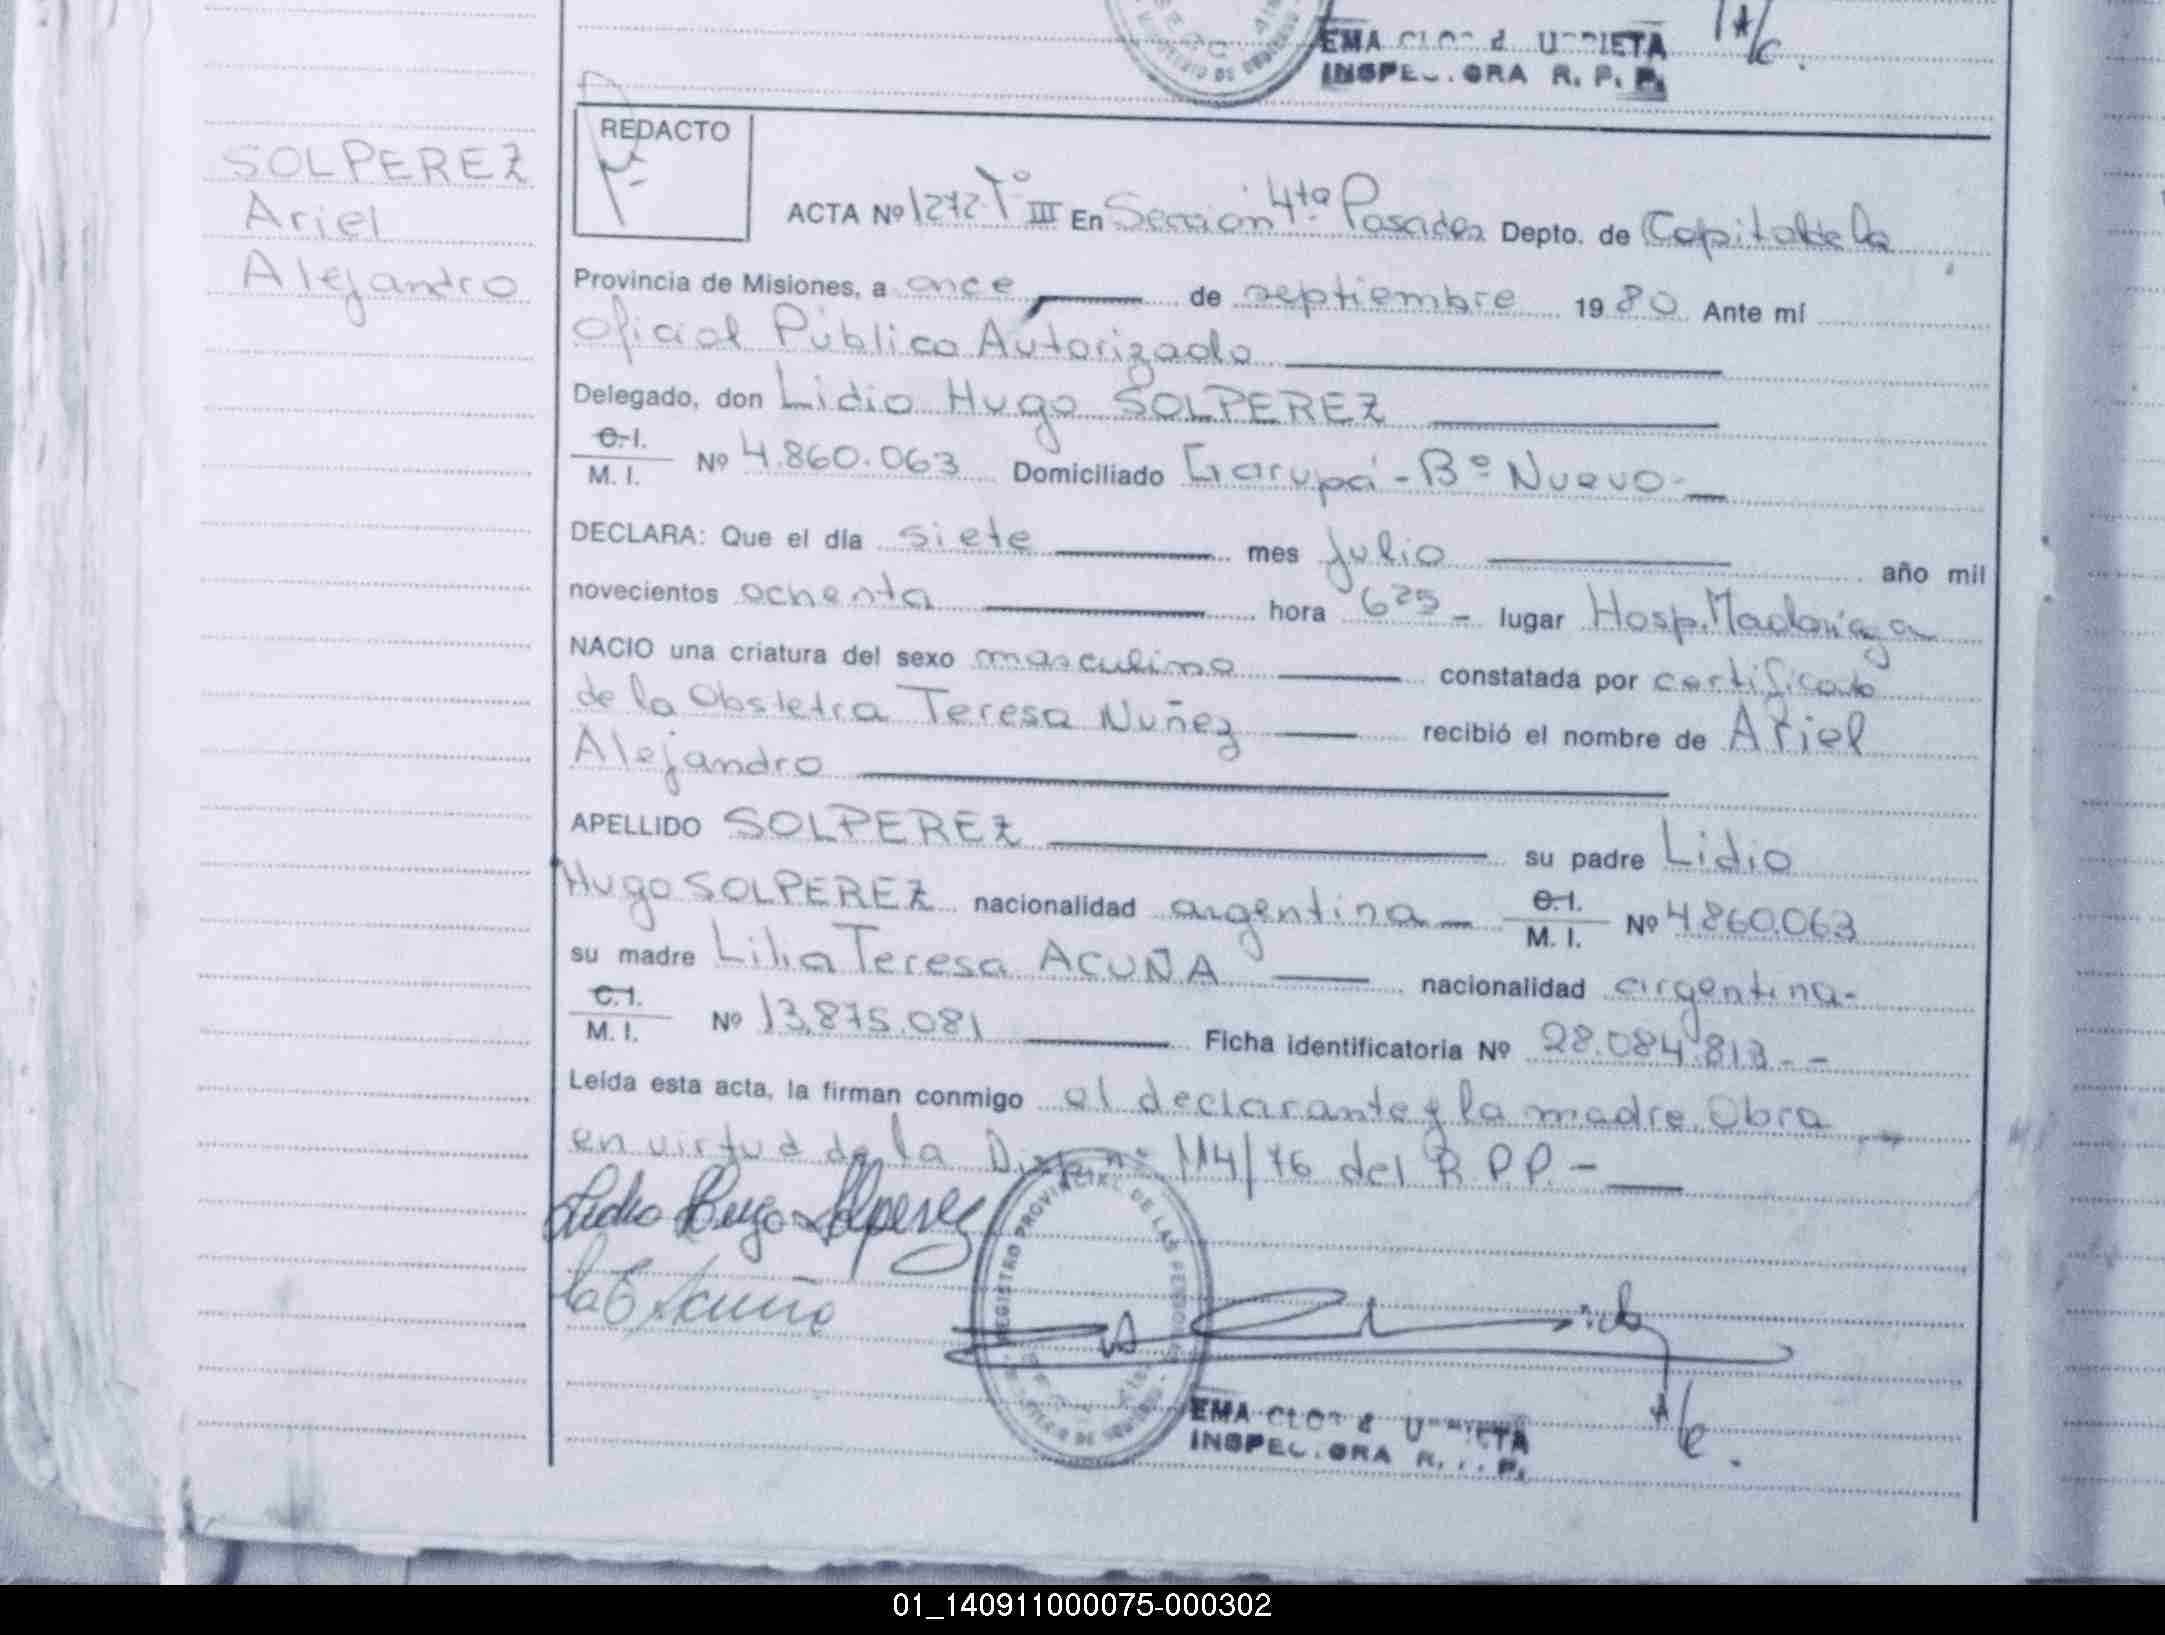 EMA
INSPE ORA R. P. P.
REDACTO
SOLPEREZ
Ariel
Alejandro
ACTA Nº 1272 Tº III En Sección 4ta Posadas Depto. de Capital de la
Provincia de Misiones, a once de septiembre 1980 Ante mí
Oficial Público Autorizado
Delegado, don Lidio Hugo SOLPEREZ
C.I.
M. I. Nº 4.860.063 Domiciliado Garupá - Bº Nuevo-
DECLARA: Que el día siete mes Julio año mil
novecientos ochenta hora 6 25 - lugar Hosp. Madariaga
NACIO una criatura del sexo masculino constatada por certificado
de la Obstetra Teresa Nuñez recibió el nombre de Ariel
Alejandro
APELLIDO SOLPEREZ su padre Lidio
Hugo SOLPEREZ nacionalidad argentina - C.I. M. I. Nº 4860.063
su madre Lilia Teresa ACUÑA nacionalidad argentina-
C.I.
M. I. Nº 13.875.081 Ficha identificatoria Nº 28.084.813.--
Leída esta acta, la firman conmigo el declarante y la madre. Obra
en virtud de la Disp. nº 114/76 del R.P.P.-
Lidio Hugo Solperez
Acuña
REGISTRO PROVINCIAL DE LAS PERSONAS
EMA
INSPEC ORA R. P.
01_140911000075-000302